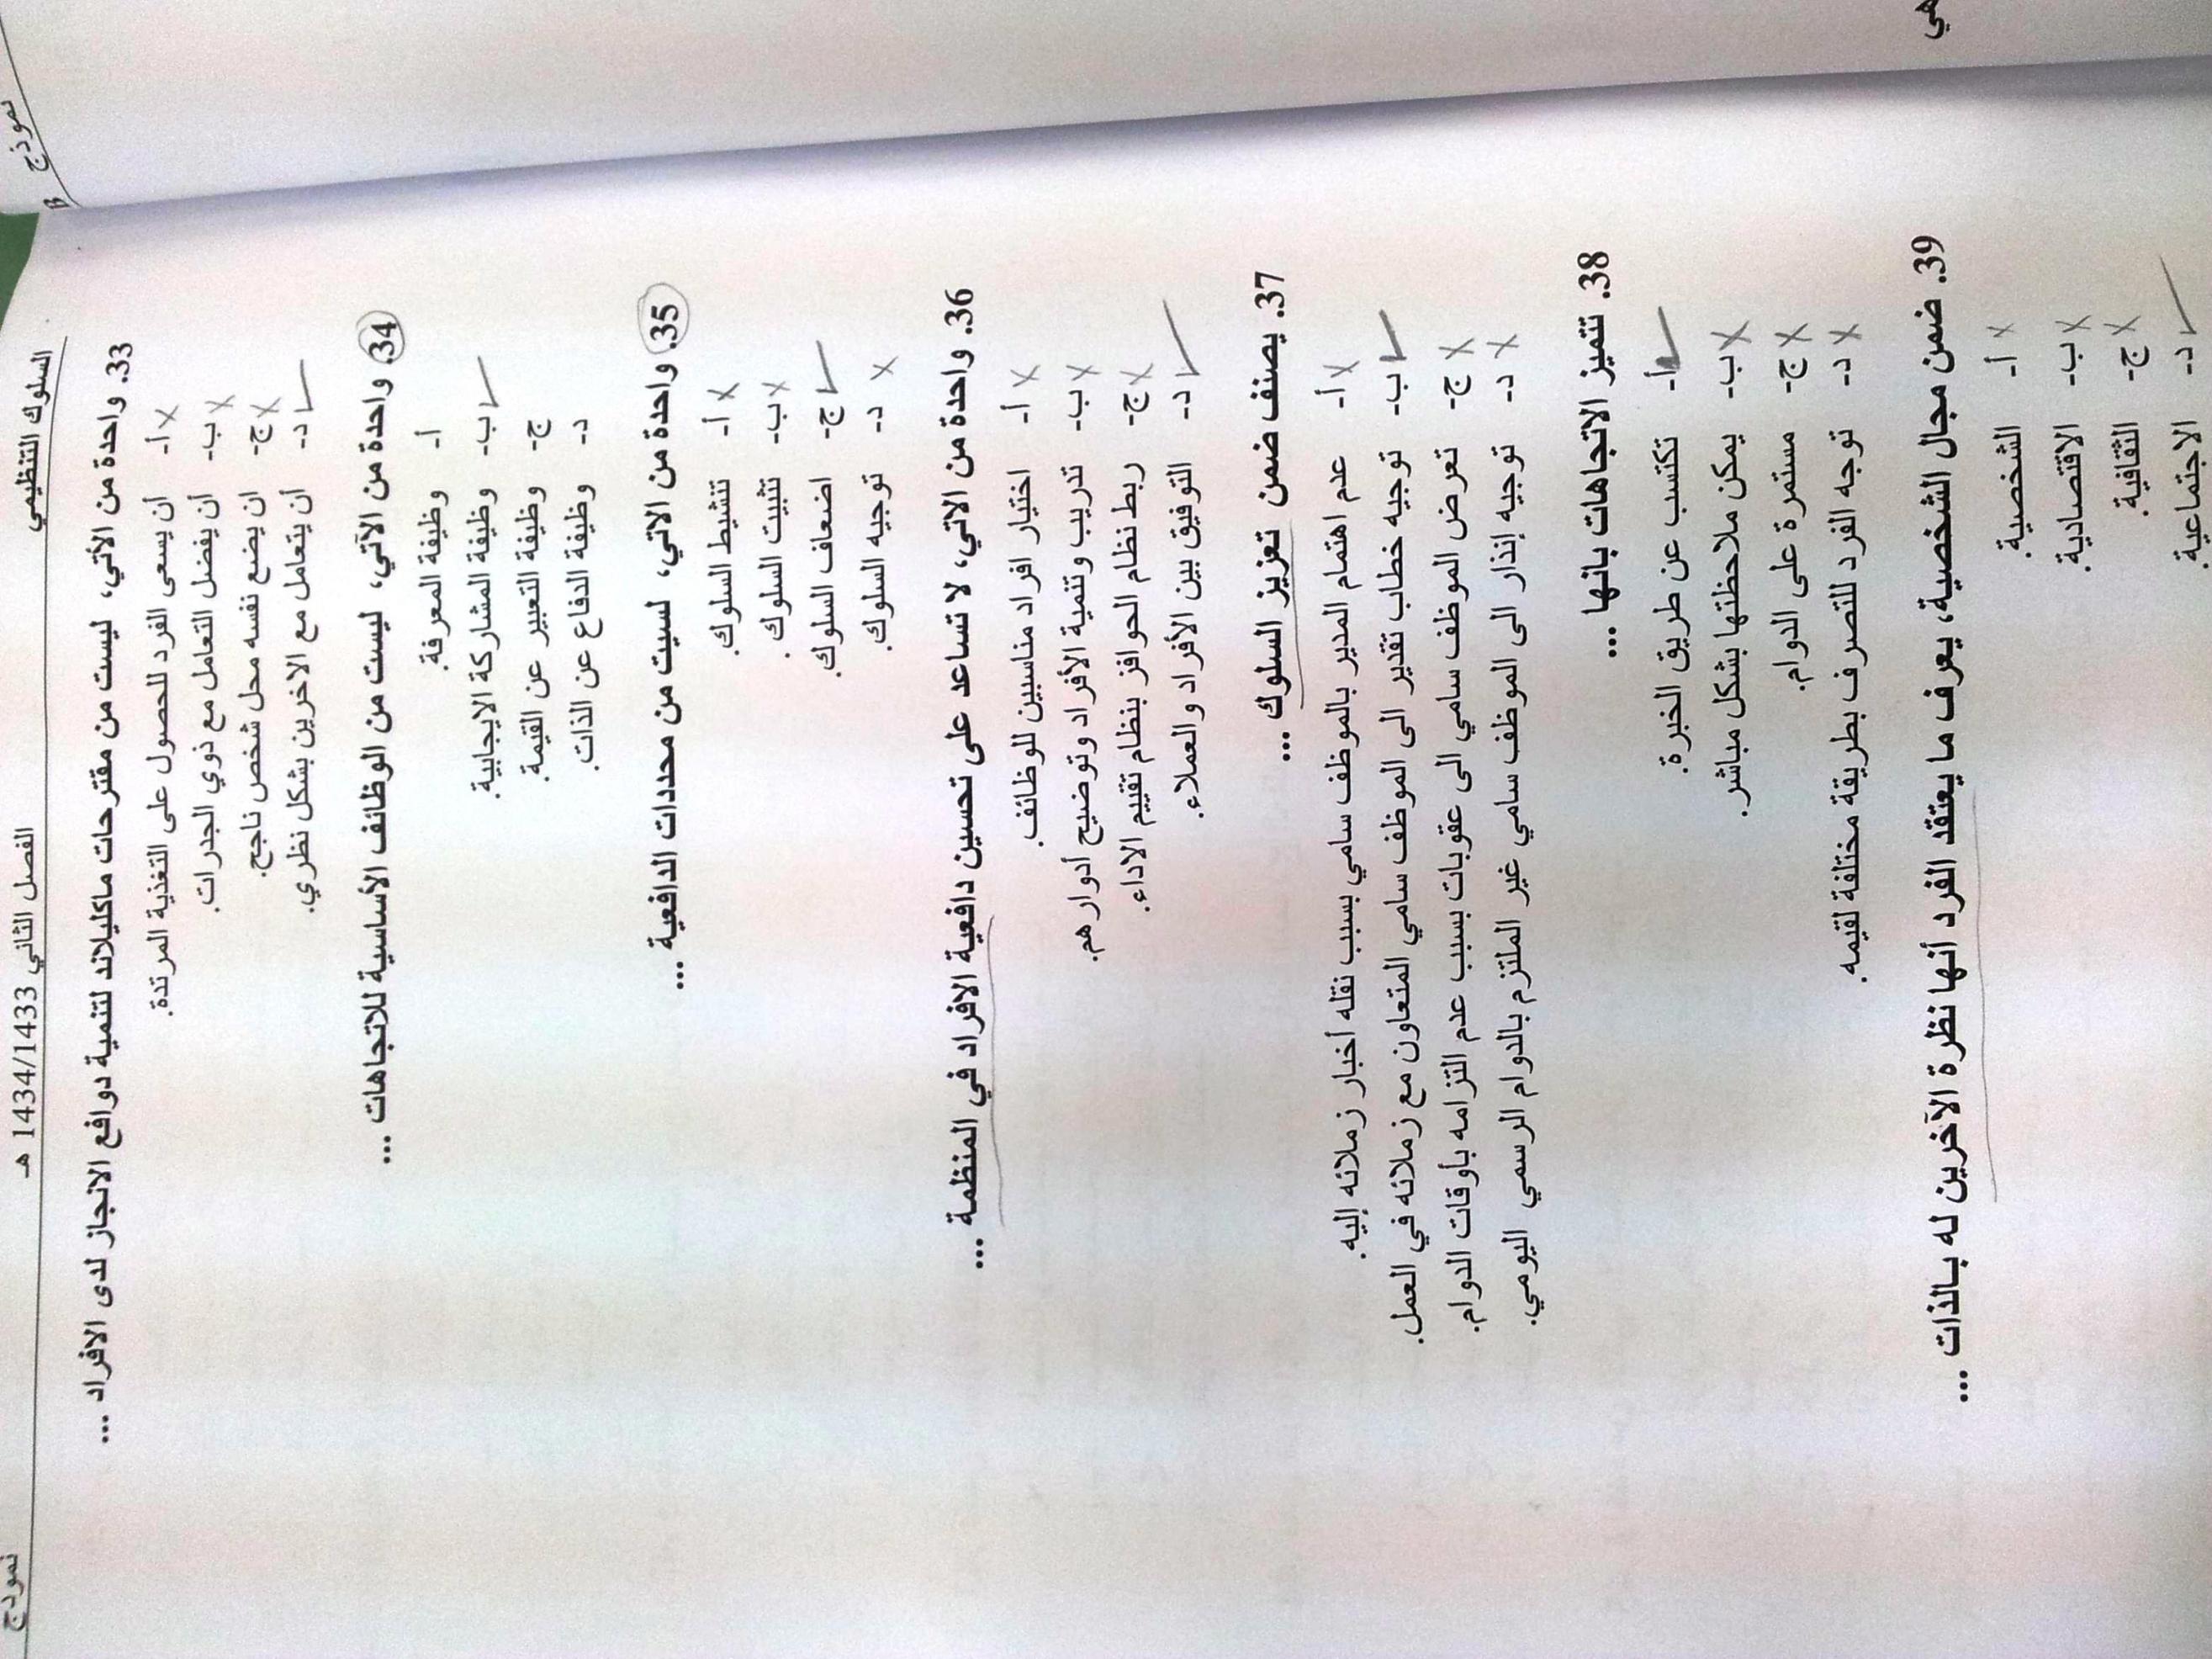 السلوك التنظيمي الفصل الثاني 1434/1433 هـ نموذج
33. واحدة من الأتي، ليست من مقترحات ماكليلاند لتنمية دوافع الانجاز لدى الافراد ...
أ- أن يسعى الفرد للحصول على التغذية المرتدة.
ب- أن يفضل التعامل مع ذوي الجدرات.
ج- ان يضع نفسه محل شخص ناجح.
د- أن يتعامل مع الاخرين بشكل نظري.
34. واحدة من الآتي، ليست من الوظائف الأساسية للاتجاهات ...
أ- وظيفة المعرفة.
ب- وظيفة المشاركة الايجابية.
ج- وظيفة التعبير عن القيمة.
د- وظيفة الدفاع عن الذات.
35. واحدة من الاتي، لسيت من محددات الدافعية ...
أ- تنشيط السلوك.
ب- تثبيت السلوك.
ج- اضعاف السلوك.
د- توجيه السلوك.
36. واحدة من الاتي، لا تساعد على تحسين دافعية الافراد في المنظمة ...
أ- اختيار افراد مناسبين للوظائف.
ب- تدريب وتنمية الأفراد وتوضيح أدوارهم.
ج- ربط نظام الحوافز بنظام تقييم الاداء.
د- التوفيق بين الأفراد والعملاء.
37. يصنف ضمن تعزيز السلوك ...
أ- عدم اهتمام المدير بالموظف سامي بسبب نقله أخبار زملائه إليه.
ب- توجيه خطاب تقدير الى الموظف سامي المتعاون مع زملائه في العمل.
ج- تعرض الموظف سامي الى عقوبات بسبب عدم التزامه بأوقات الدوام.
د- توجيه إنذار الى الموظف سامي غير الملتزم بالدوام الرسمي اليومي.
38. تتميز الاتجاهات بانها ...
أ- تكتسب عن طريق الخبرة.
ب- يمكن ملاحظتها بشكل مباشر.
ج- مستمرة على الدوام.
د- توجه الفرد للتصرف بطريقة مختلفة لقيمه.
39. ضمن مجال الشخصية، يعرف ما يعتقد الفرد أنها نظرة الآخرين له بـالذات ...
أ- الشخصية.
ب- الاقتصادية.
ج- الثقافية.
د- الاجتماعية.
نموذج B
هي